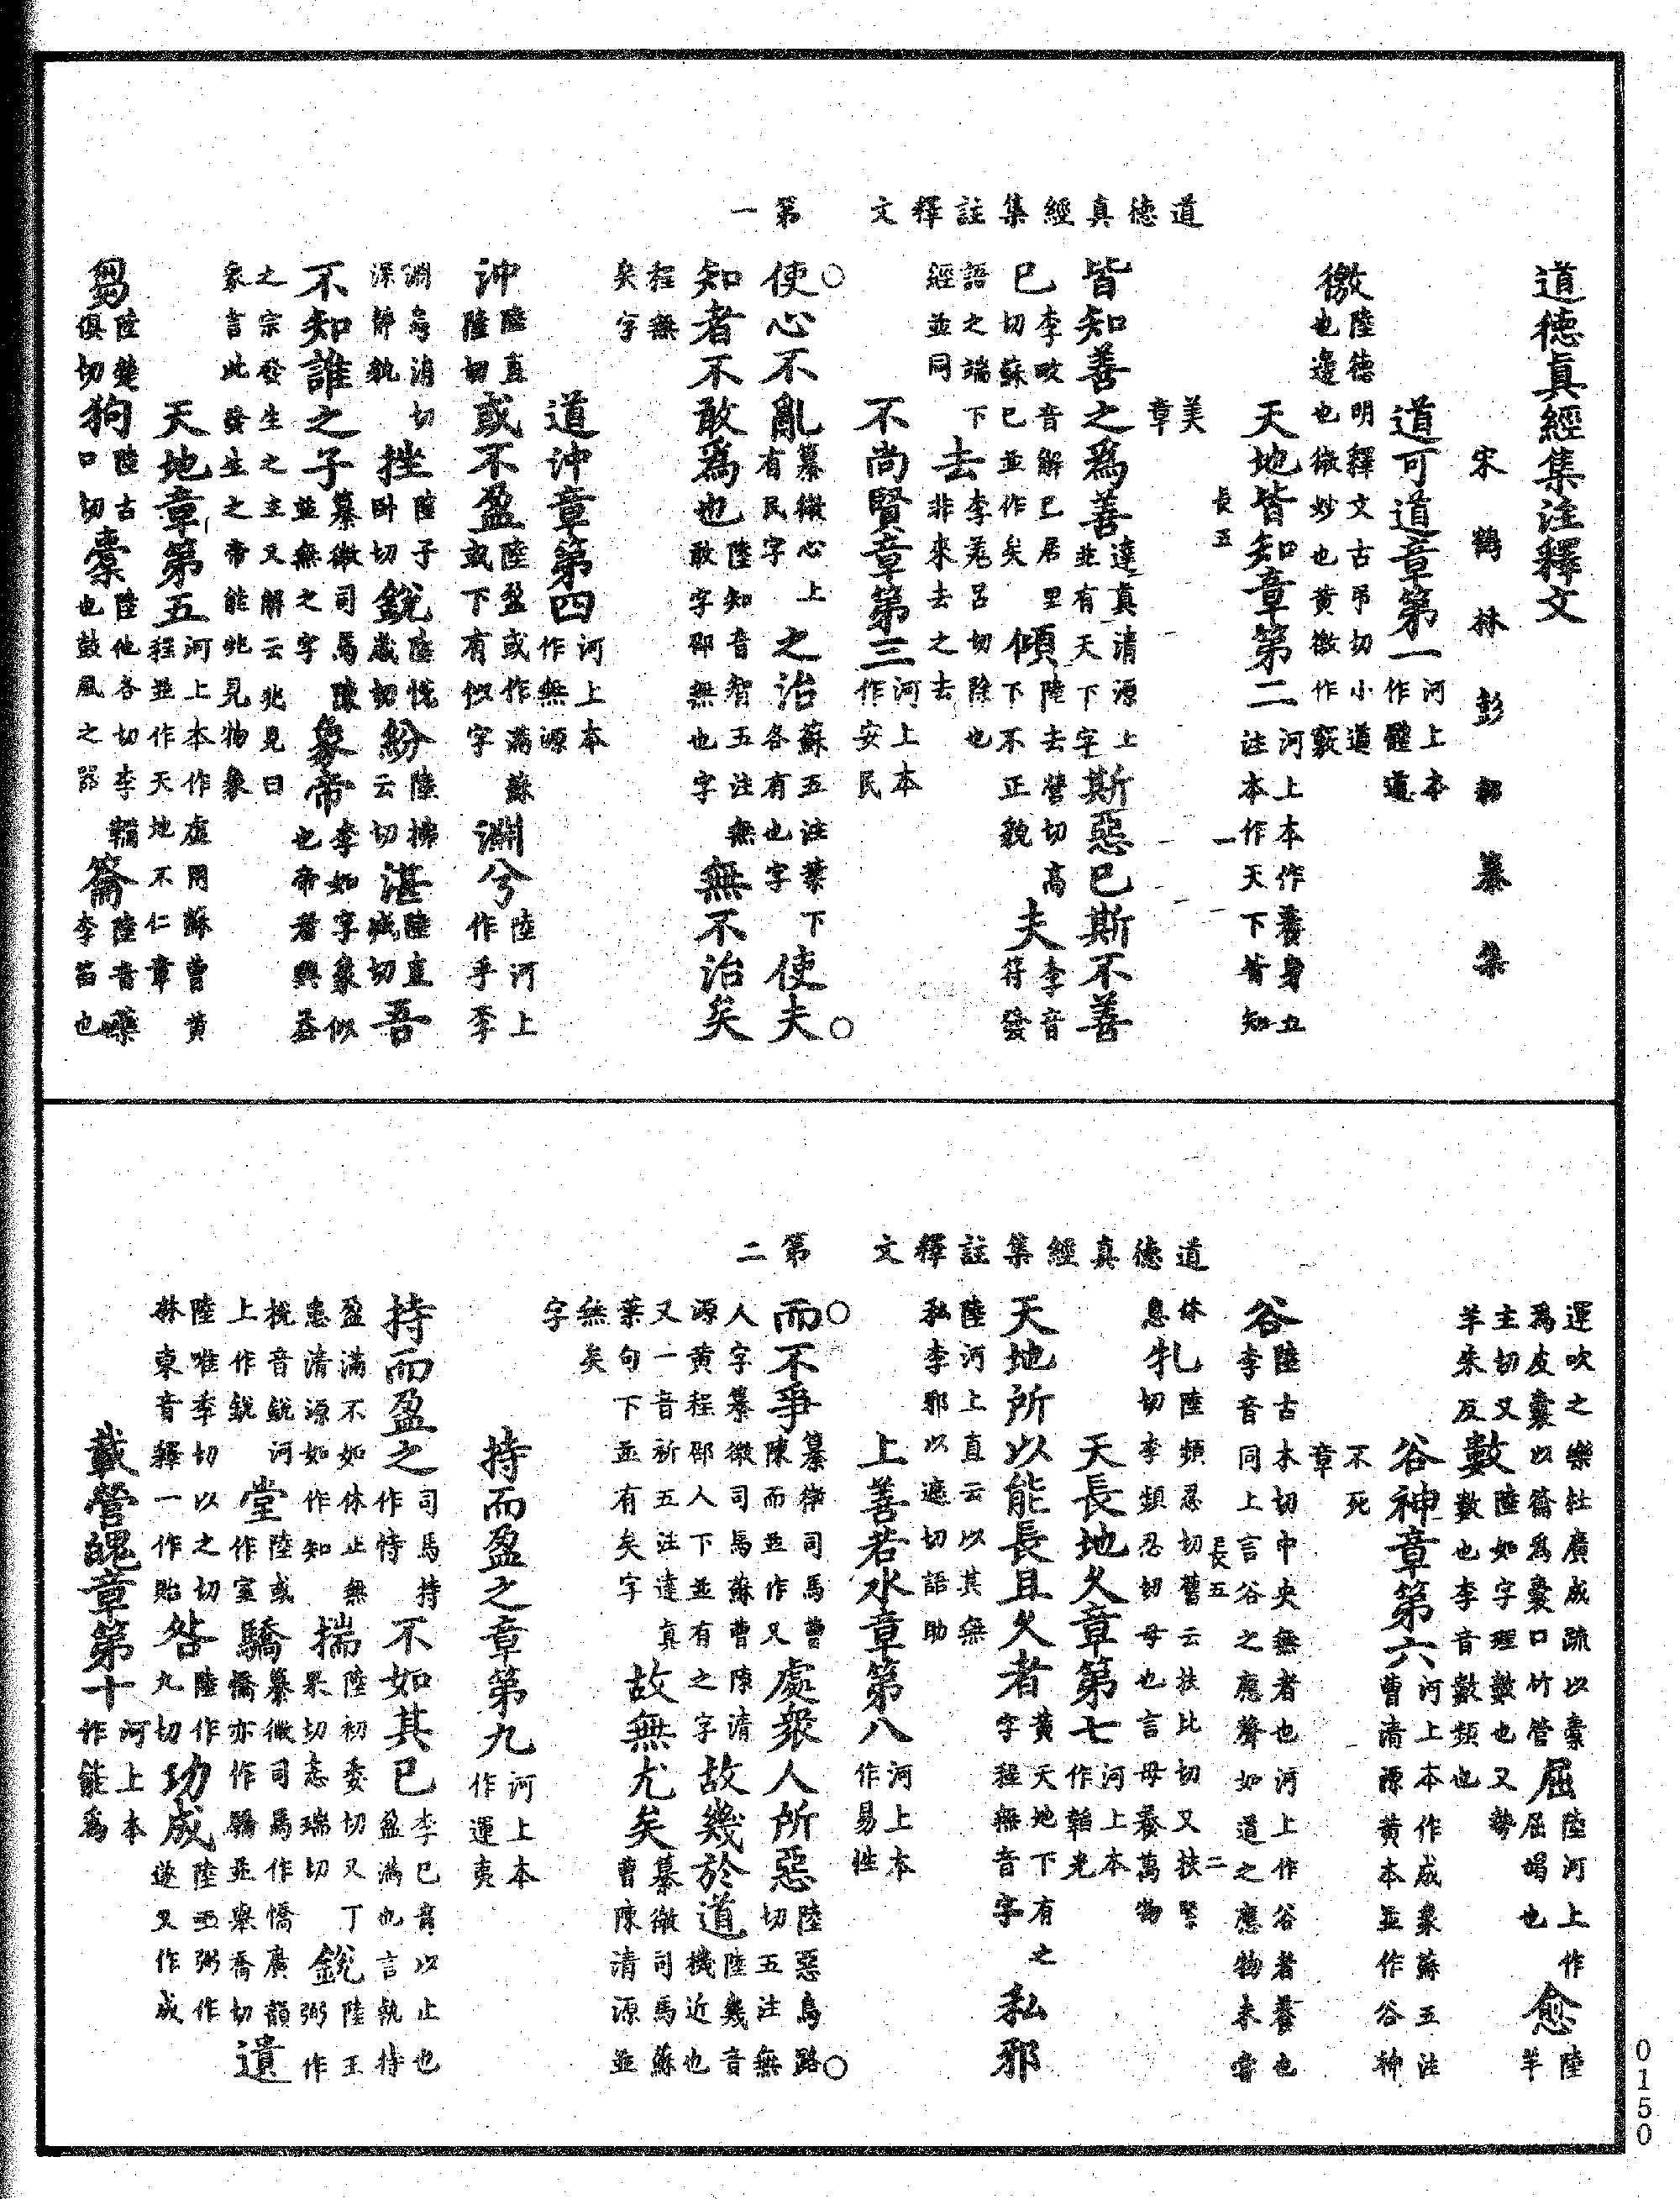 道德真經集註釋文　第一
道德真經集注釋文
宋鶴林彭耜纂集
道可道章第一河上本作體道
徼陸德明釋文古弔切小道也邊也微妙也黃徼作竅
天地皆知章第二河上本作養身五注本作天下皆知
長五　一
美章
皆知善之為善達真清源上並有天下字斯惡已斯不善
已李畋音解已居里切蘇已並作矣傾陸去營切高下不正貌夫李音符發
語之端下經並同去李羌呂切除也非來去之去
不尚賢章第三河上本作安民
使心不亂纂微心上有民字之治蘇五注葉下各有也字使夫
知者不敢為也陸知音智五注無敢字邵無也字無不治矣
程無矣字
道沖章第四河上本作無源
沖陸直隆切或不盈陸盈或作滿蘇或下有似字淵兮陸河上作乎李
淵烏消切深靜貌挫陸子臥切銳陸悅歲切紛陸拂云切湛陸直減切吾
不知誰之子纂微司馬陳並無之字象帝李如字象似也帝者興益
之宗發生之主又解云兆見曰象言此發生之帝能兆見物象
天地章第五河上本作虛用蘇曹黃程並作天地不仁章
芻陸楚俱切狗陸古口切橐陸他各切李鞴也鼓風之器籥陸音藥李笛也
道德真經集註釋文　第二
運吹之樂杜廣成疏以橐為皮囊以籥為囊口竹管屈陸河上作屈竭也愈陸羊
主切又羊朱反數陸如字理數也又勢數也李音數頻也
谷神章第六河上本作成象蘇五注曹清源黃本並作谷神
不死章
谷陸古木切中央無者也河上作谷者養也李音同上言谷之應聲如道之應物未嘗
長五　二
休息牝陸頻忍切舊云扶比切又扶緊切李頻忍切母也言母養萬物
天長地久章第七河上本作韜光
天地所以能長且久者黃天地下有之字程無音字私邪
陸河上直云以其無私李邪以遮切語助
上善若水章第八河上本作易性
而不爭纂微司馬曹陳而並作又處眾人所惡陸惡烏路切五注無
人字纂微司馬蘇曹陳清源黃程邵人下並有之字故幾於道陸幾音機近也
又一音祈五注達真葉句下並有矣字故無尤矣纂微司馬蘇曹陳清源並
無矣字
持而盈之章第九河上本作運夷
持而盈之司馬持作恃不如其已李已音以止也盈滿也言執持
盈滿不如休止無患清源如作知揣陸初委切又丁果切志瑞切銳陸王弼作
梲音銳河上作銳堂陸或作室驕纂微司馬作憍廣韻憍亦作驕並舉喬切遺
陸唯季切以之切林東音釋一作貽咎陸作丸切功成陸王弼作遂又作成
載營魄章第十河上本作能為
0150